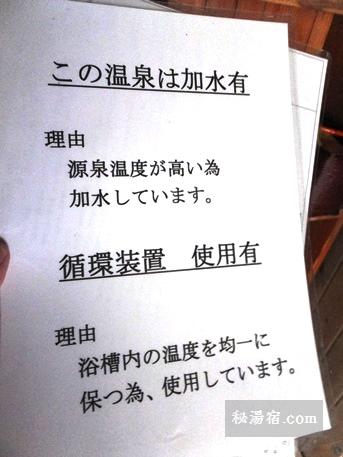 この温泉は加水有
理由
源泉温度が高い為
加水しています。
循環装置　使用有
理由
浴槽内の温度を均一に
保つ為、使用しています。
秘湯宿.com